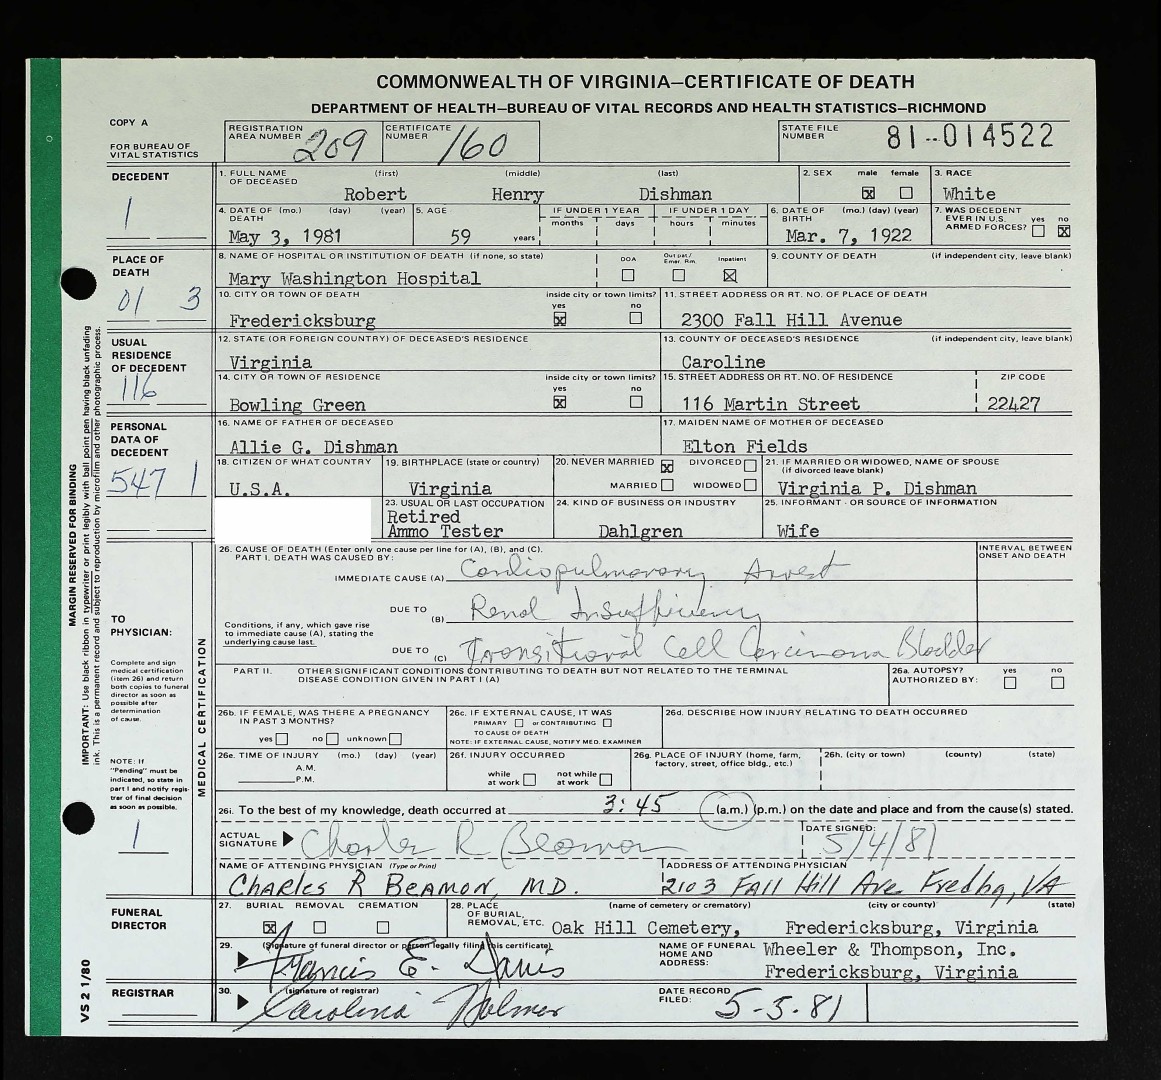 COMMONWEALTH OF VIRGINIA—CERTIFICATE OF DEATH
DEPARTMENT OF HEALTH—BUREAU OF VITAL RECORDS AND HEALTH STATISTICS—RICHMOND
COPY A
FOR BUREAU OF VITAL STATISTICS
REGISTRATION AREA NUMBER 209
CERTIFICATE NUMBER 160
STATE FILE NUMBER 81--014522
DECEDENT
1
1. FULL NAME OF DECEASED (first) (middle) (last)
Robert Henry Dishman
2. SEX male female
3. RACE
White
4. DATE OF DEATH (mo.) (day) (year)
May 3, 1981
5. AGE
59 years
IF UNDER 1 YEAR months days
IF UNDER 1 DAY hours minutes
6. DATE OF BIRTH (mo.) (day) (year)
Mar. 7, 1922
7. WAS DECEDENT EVER IN U.S. ARMED FORCES? yes no
PLACE OF DEATH
01 3
8. NAME OF HOSPITAL OR INSTITUTION OF DEATH (if none, so state)
Mary Washington Hospital
DOA Out pat/ Emer. Rm. Inpatient
9. COUNTY OF DEATH (if independent city, leave blank)
10. CITY OR TOWN OF DEATH
Fredericksburg
inside city or town limits? yes no
11. STREET ADDRESS OR RT. NO. OF PLACE OF DEATH
2300 Fall Hill Avenue
USUAL RESIDENCE OF DECEDENT
116
12. STATE (OR FOREIGN COUNTRY) OF DECEASED'S RESIDENCE
Virginia
13. COUNTY OF DECEASED'S RESIDENCE (if independent city, leave blank)
Caroline
14. CITY OR TOWN OF RESIDENCE
Bowling Green
inside city or town limits? yes no
15. STREET ADDRESS OR RT. NO. OF RESIDENCE
116 Martin Street
ZIP CODE
22427
PERSONAL DATA OF DECEDENT
547 1
16. NAME OF FATHER OF DECEASED
Allie G. Dishman
17. MAIDEN NAME OF MOTHER OF DECEASED
Elton Fields
18. CITIZEN OF WHAT COUNTRY
U.S.A.
19. BIRTHPLACE (state or country)
Virginia
20. NEVER MARRIED DIVORCED
MARRIED WIDOWED
21. IF MARRIED OR WIDOWED, NAME OF SPOUSE
(if divorced leave blank)
Virginia P. Dishman
23. USUAL OR LAST OCCUPATION
Retired
Ammo Tester
24. KIND OF BUSINESS OR INDUSTRY
Dahlgren
25. INFORMANT - OR SOURCE OF INFORMATION
Wife
MARGIN RESERVED FOR BINDING
IMPORTANT: Use black ribbon in typewriter or print legibly with ball point pen having black unfading
ink. This is a permanent record and subject to reproduction by microfilm and other photographic process.
VS 2 1/80
TO PHYSICIAN:
Complete and sign
medical certification
(item 26) and return
both copies to funeral
director as soon as
possible after
determination
of cause.
NOTE: If
"Pending" must be
indicated, so state in
part I and notify regis-
trar of final decision
as soon as possible.
1
MEDICAL CERTIFICATION
26. CAUSE OF DEATH (Enter only one cause per line for (A), (B), and (C).
PART I. DEATH WAS CAUSED BY:
INTERVAL BETWEEN ONSET AND DEATH
IMMEDIATE CAUSE (A) Cardiopulmonary Arrest
DUE TO (B) Renal Insufficiency
Conditions, if any, which gave rise
to immediate cause (A), stating the
underlying cause last.
DUE TO (C) Transitional Cell Carcinoma Bladder
PART II. OTHER SIGNIFICANT CONDITIONS CONTRIBUTING TO DEATH BUT NOT RELATED TO THE TERMINAL
DISEASE CONDITION GIVEN IN PART I (A)
26a. AUTOPSY? AUTHORIZED BY: yes no
26b. IF FEMALE, WAS THERE A PREGNANCY IN PAST 3 MONTHS?
yes no unknown
26c. IF EXTERNAL CAUSE, IT WAS
PRIMARY or CONTRIBUTING
TO CAUSE OF DEATH
NOTE: IF EXTERNAL CAUSE, NOTIFY MED. EXAMINER
26d. DESCRIBE HOW INJURY RELATING TO DEATH OCCURRED
26e. TIME OF INJURY (mo.) (day) (year)
A.M.
P.M.
26f. INJURY OCCURRED
while at work not while at work
26g. PLACE OF INJURY (home, farm, factory, street, office bldg., etc.)
26h. (city or town) (county) (state)
26i. To the best of my knowledge, death occurred at 3:45 (a.m.) (p.m.) on the date and place and from the cause(s) stated.
ACTUAL SIGNATURE Charles R Beamon
DATE SIGNED: 5/4/81
NAME OF ATTENDING PHYSICIAN (Type or Print)
CHARLES R BEAMON, M.D.
ADDRESS OF ATTENDING PHYSICIAN
2103 FALL Hill Ave Fredbg, VA
FUNERAL DIRECTOR
27. BURIAL REMOVAL CREMATION
28. PLACE OF BURIAL, REMOVAL, ETC. (name of cemetery or crematory) (city or county) (state)
Oak Hill Cemetery, Fredericksburg, Virginia
29. (Signature of funeral director or person legally filing this certificate)
Francis E. Davis
NAME OF FUNERAL HOME AND ADDRESS:
Wheeler & Thompson, Inc.
Fredericksburg, Virginia
REGISTRAR
30. (signature of registrar)
DATE RECORD FILED: 5-5-81